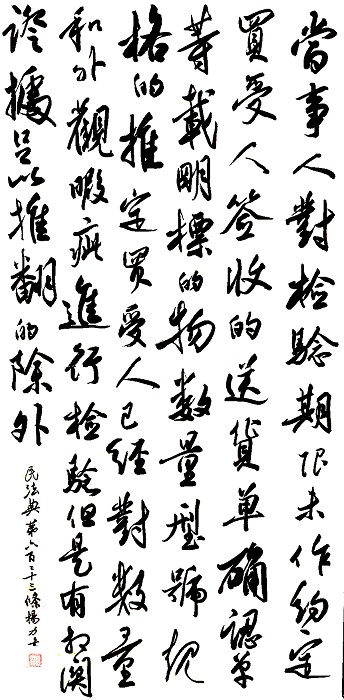 當事人對检驗期限未作約定
買受人签收的送貨單確認單
等載明標的物数量型號規
格的推定買受人已經對数量
和外觀暇疵進行检驗但是有相関
證據足以推翻的除外
民法典第六百二十三條楊力